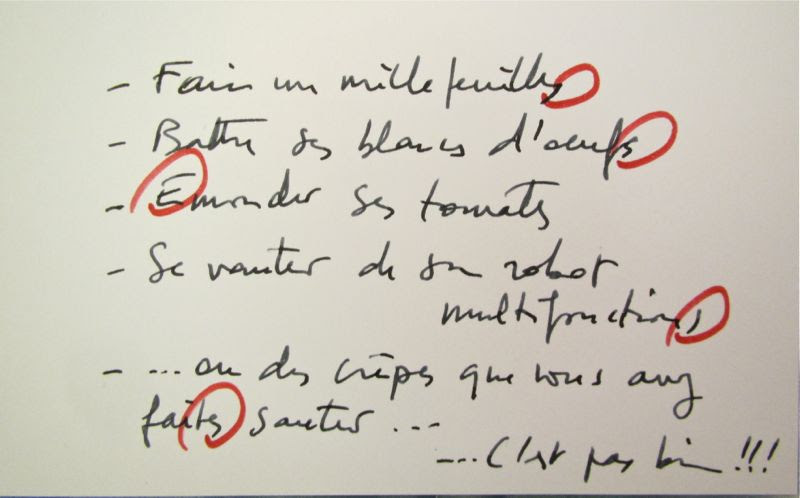 - Faire un mille feuilles
- Battre ses blancs d'oeufs
- Emonder ses tomates
- Se vanter de son robot
multifonctions
- ... ou des crêpes que vous avez
faites sauter ...
... C'est pas bien !!!